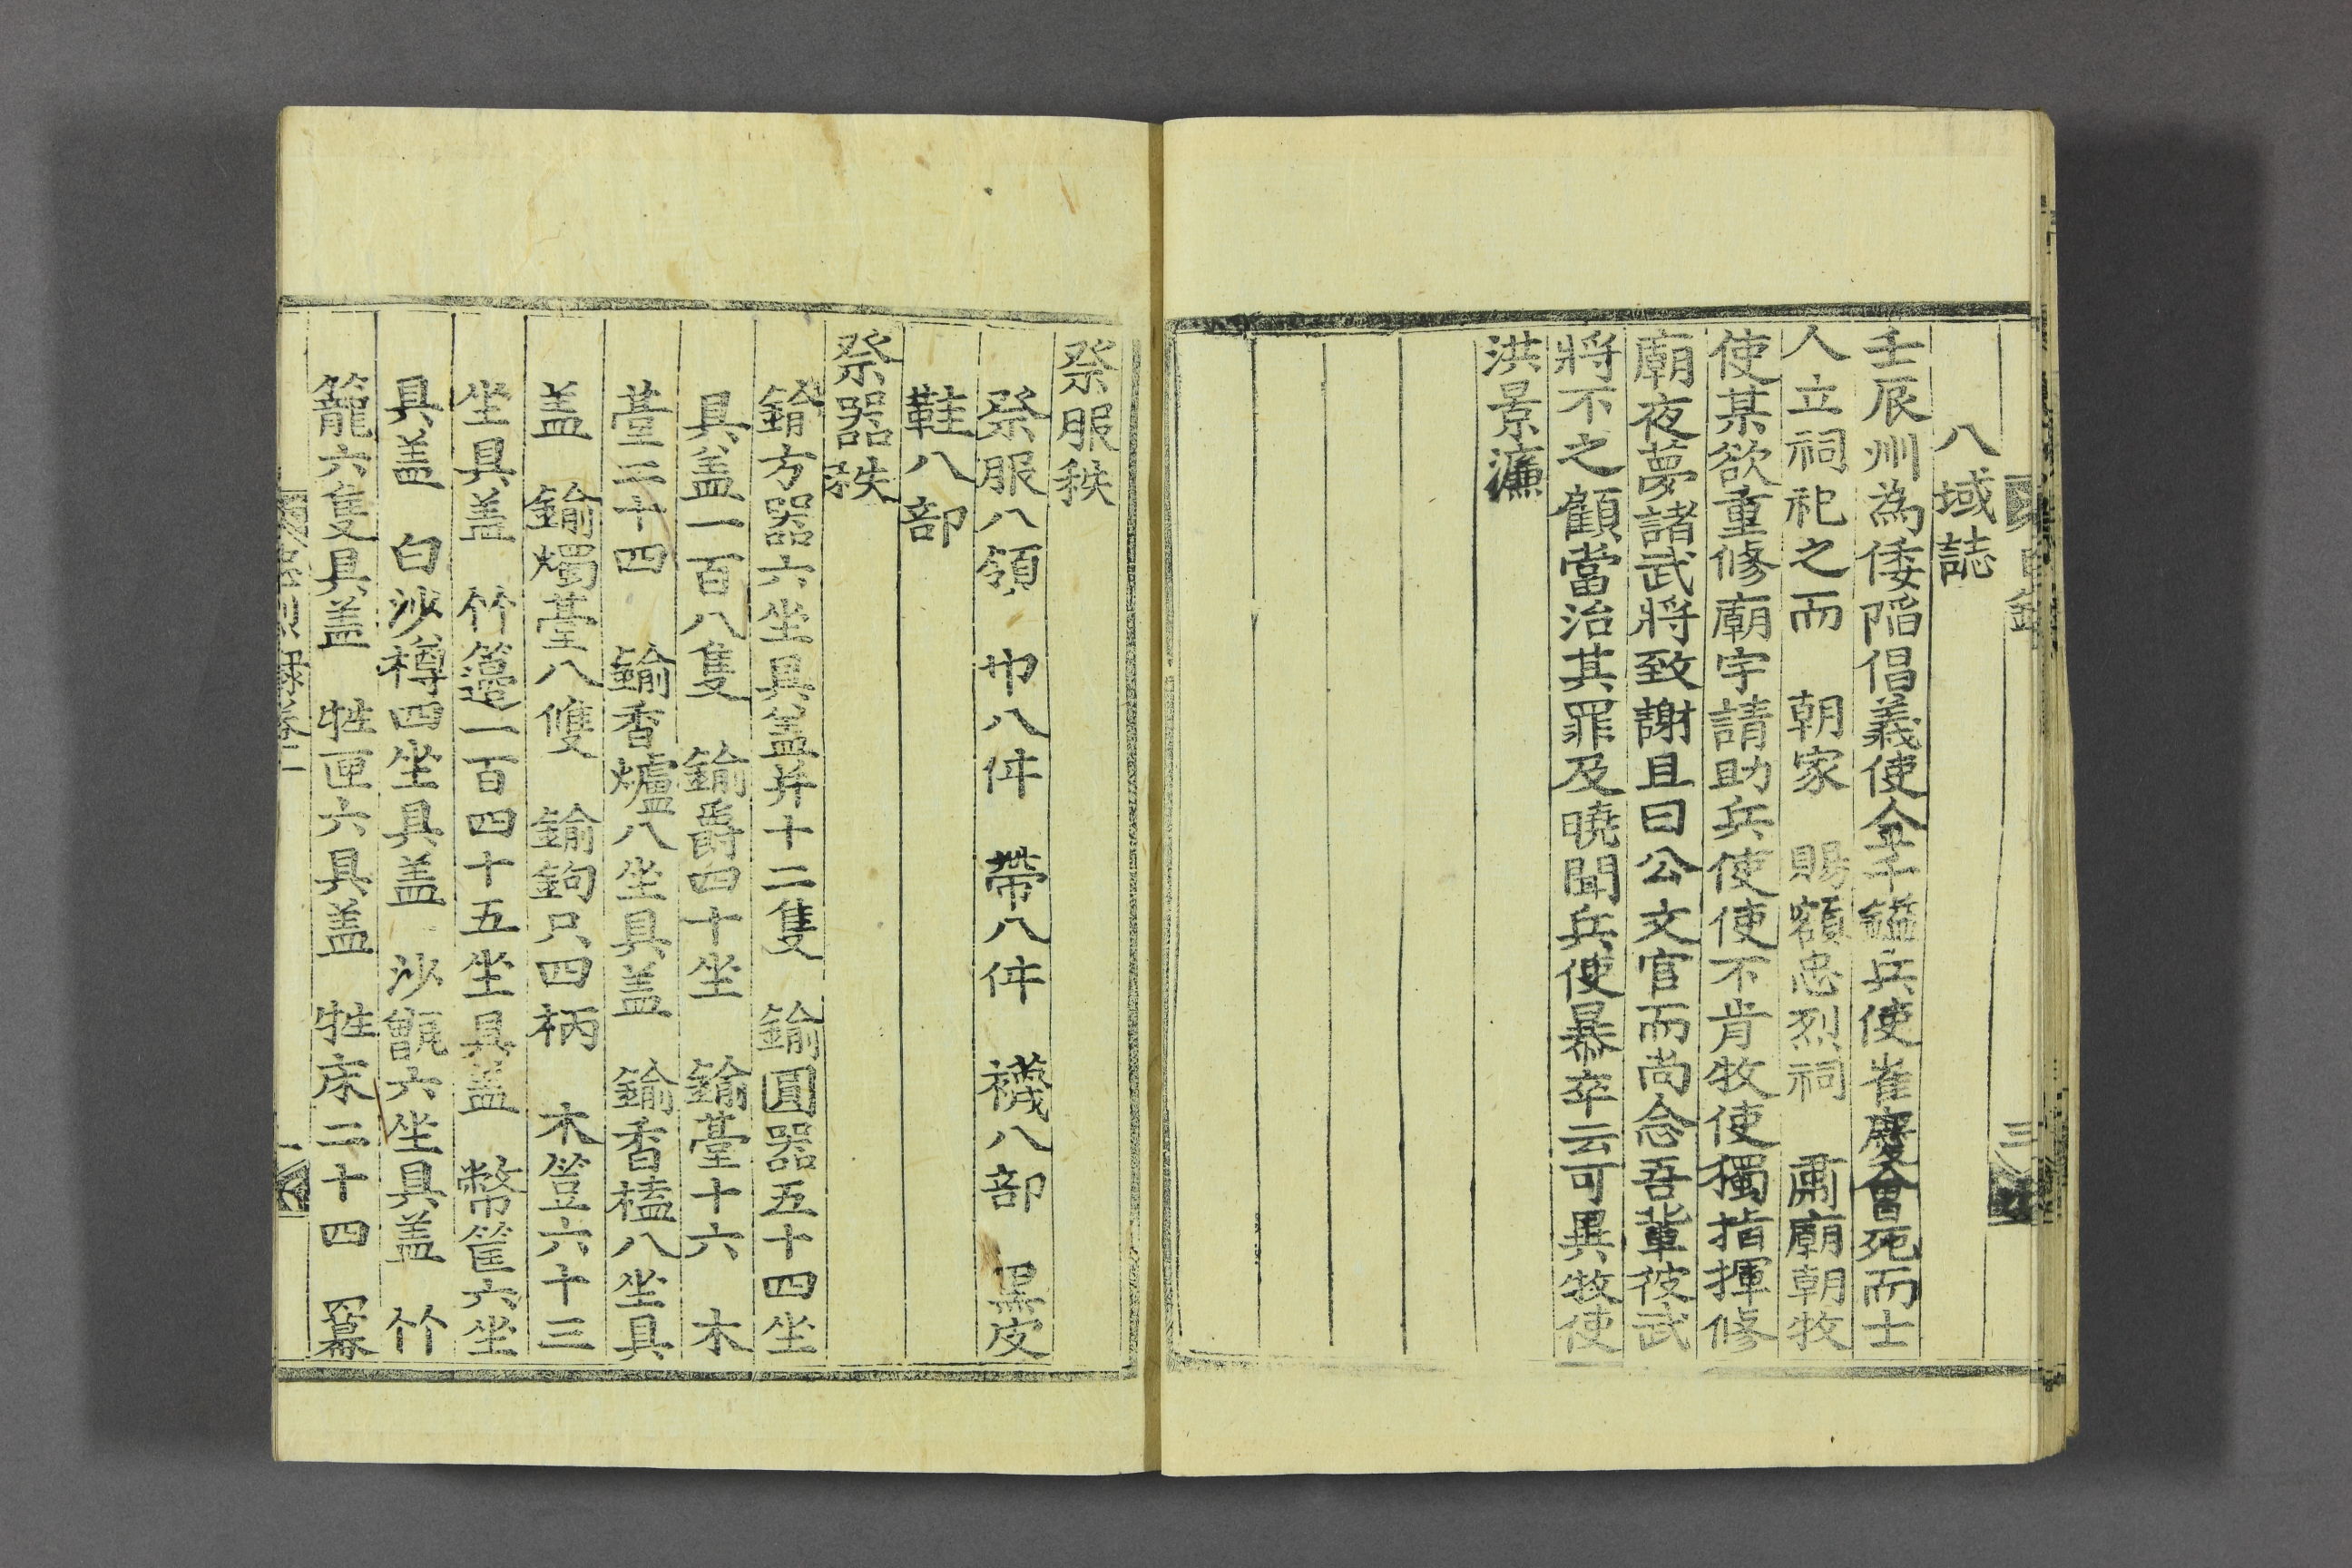 八域誌
壬辰州為倭陷倡義使金千鎰兵使崔慶會死而士
人立祠祀之而 朝家 賜額忠烈祠 肅廟朝牧
使某欲重修廟宇請助兵使使不肯牧使獨指揮修
廟夜夢諸武將致謝且曰公文官而尚念吾輩彼武
將不之顧當治其罪及曉聞兵使暴卒云可異牧使
洪景濂
三
祭服秩
祭服八領 巾八件 帶八件 襪八部 黑皮
鞋八部
祭器秩
鍮方器六坐具盖并十二隻 鍮圓器五十四坐
具盖一百八隻 鍮爵四十坐 鍮臺十六 木
臺三十四 鍮香爐八坐具盖 鍮香榼八坐具
盖 鍮燭臺八雙 鍮鉤只四柄 木簦六十三
坐具盖 竹籩一百四十五坐具盖 幣筐六坐
具盖 白沙樽四坐具盖 沙甑六坐具盖 竹
籠六隻具盖 牲匣六具盖 牲床二十四 羃